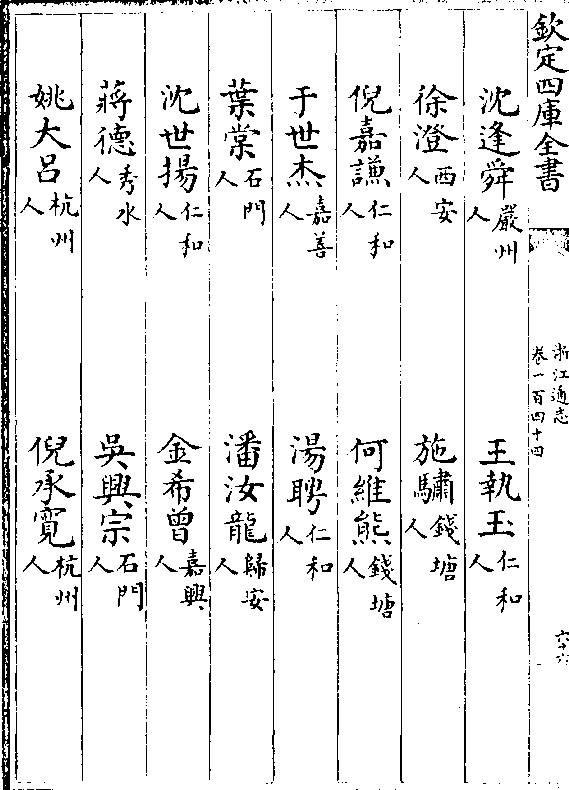 欽定四庫全書
浙江通志
卷一百四十四
六十六
沈逢舜嚴州人
王執玉仁和人
徐澄西安人
施驌錢塘人
倪嘉謙仁和人
何維熊錢塘人
于世杰嘉善人
湯聘仁和人
葉棠石門人
潘汝龍歸安人
沈世揚仁和人
金希曾嘉興人
蔣德秀水人
吳興宗石門人
姚大呂杭州人
倪承寬杭州人